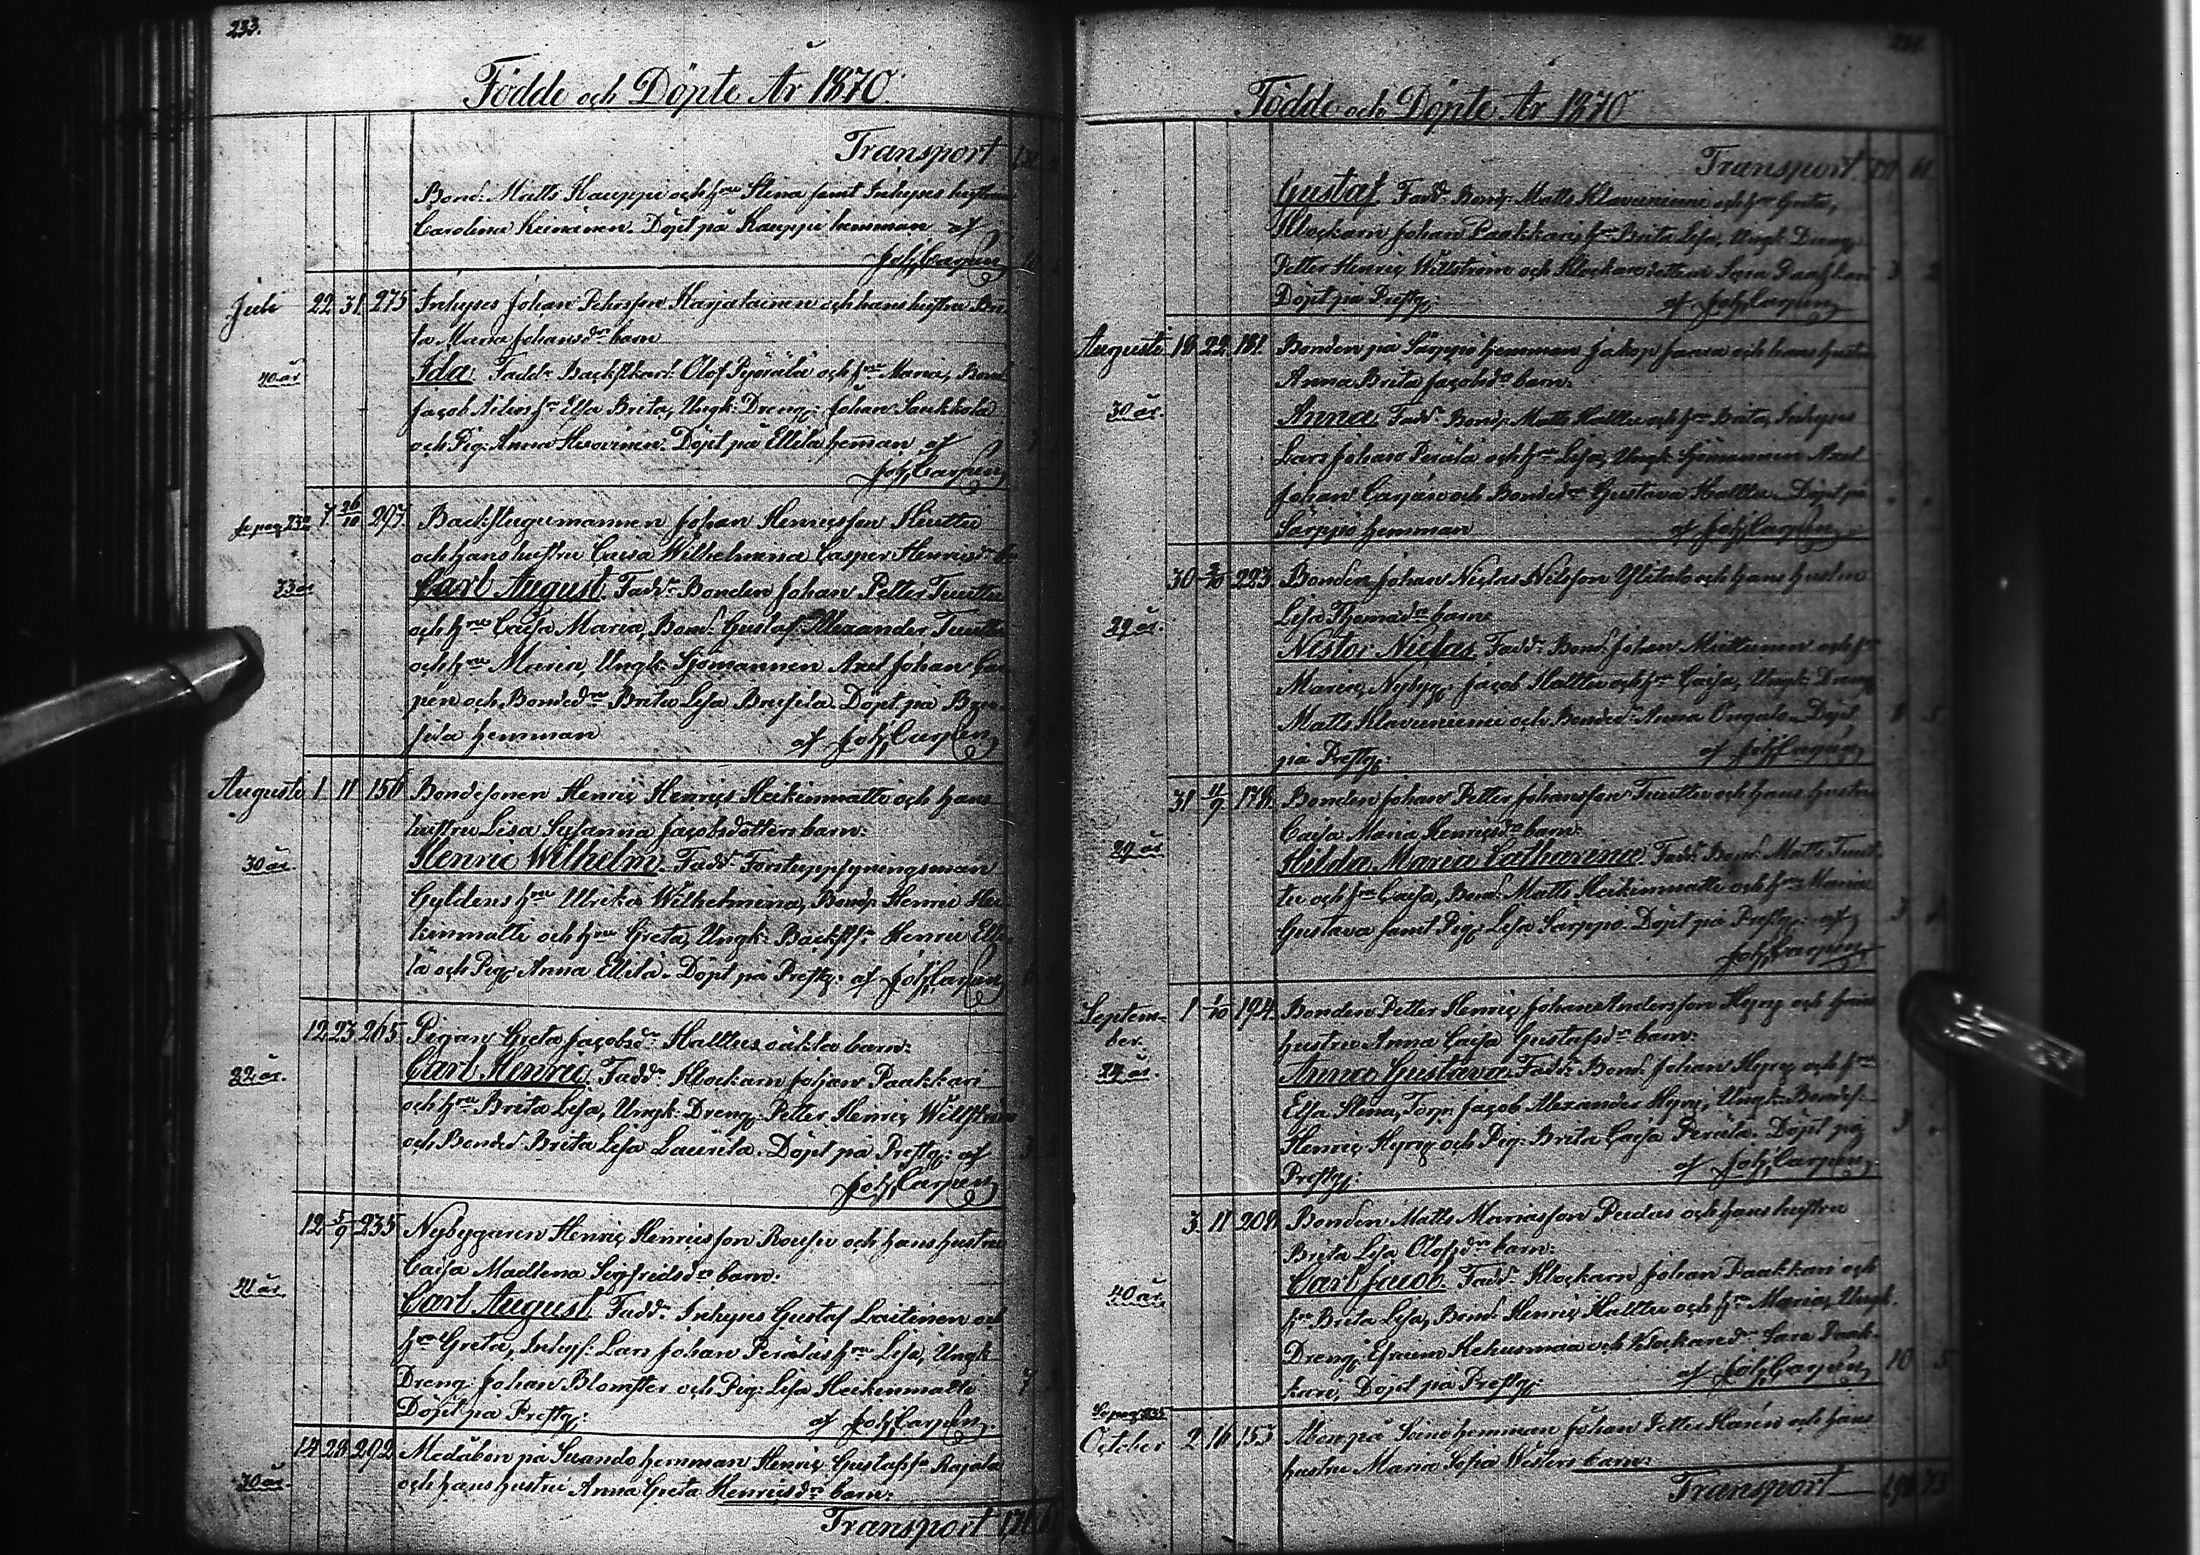 233.
Födde och Döpte År 1870.
Transport
Bond: Matts Kauppi och hru Stina samt Inhyses hustrun
Carolina Keinänen. Döpt på Kauppi hemman af
Joh. Carpén
Juli 22 31 275 Inhyses Johan Pehrsson Harjalainen och hans hustru Bri
ta Maria Johansdr barn
40 år Ida. Fadd: Backstkarl: Olof Pyörälä och hru Maria, Bond:
Jacob Ailios hr Elsa Brita, Ungk: Dreng: Johan Saukkola
och Pig: Anna Hirvinen. Döpt på Ellilä heman af
Joh. Carpén
Se pag. 232 7 26/10 297. Backstugumannen Johan Henricsson Huttu
och hans hustru Caisa Wilhelmina Casper Henricsdr
33 år Carl August. Fadd: Bonden Johan Petter Tuuttu
och hru Caisa Maria, Bond: Gustaf Alexander Tuuttu
och hru Maria, Ungk: Sjömannen Axel Johan Car
pén och Bondedr Brita Lisa Bryssilä. Döpt på Brys
silä hemman af Joh. Carpén
Augusti 1 11 156 Bondesonen Henric Henrics Heikinmatti och hans
hustru Lisa Susanna Jacobsdotters barn:
30 år. Henric Wilhelm. Fadd: Forstuppsyningsman
Gyldens hru Ulrika Wilhelmina, Bond: Henric Hei
kinmatti och hru Greta, Ungk: Backstss: Henric Elli
lä och Pig: Anna Ellilä. Döpt på Prestg: af Joh. Carpén
12 23 265 Pigan Greta Jacobsdr Halttus oäkta barn:
22 år. Carl Henric. Fadd: Klockarn Johan Paakkari
och hru Brita Lisa, Ungk: Dreng: Petter Henric Wilström
och Bonded: Brita Lisa Laurila. Döpt på Prestg: af
Joh. Carpén
12 5/9 235 Nybyggaren Henric Henricsson Rousu och hans hustru
Caisa Madlena Sigfredsdr barn:
41 år. Carl August. Fadd: Inhyses Gustaf Laitinen och
hru Greta, Inhys: Lars Johan Peräläs hru Lisa, Ungk:
Dreng: Johan Blomster och Pig: Lisa Heikinmatti 7
Döpt på Prestg: af Joh. Carpén.
14 28 292 Medåbon på Suando hemman Henric Gustafss: Rajala
30 år. och hans hustru Anna Greta Henricsdr barn:
Transport 171 61
Födde och Döpte År 1870
Transport. 171 61.
Gustaf. Fadd: Bond: Matts Klavuniemi och hr Greta,
Klockarn Johan Paakkari, hr Brita Lisa, Ungk: Dreng:
Petter Henric Willström och Klockaredottern Sara Paakkari 3 2
Döpt på Prestg: af Joh. Carpén
Augusti 18 22 181. Bonden på Särppö hemman Jakop Jaara och hans hustru
Anna Brita Jacobsdr barn:
30 år. Anna. Fadd: Bond: Matts Halttu och hru Brita, Inhyses
Lars Johan Perälä och hru Lisa, Ungk: Sjömannen Axel
Johan Carpén och Bondedr Gustava Halttu. Döpt på
Särppö hemman af Joh. Carpén
30 2/10 223 Bonden Johan Niclas Nilsson Ylitalo och hans hustru
29 år. Lisa Thomasdr barn
Nestor Niclas. Fadd: Bond: Johan Miettunen och hr
Maria, Nybyg: Jacob Halttu och hr Caisa, Ungk: Dreng
Matts Klavuniemi och Bonded: Anna Ongalo. Döpt 8 5
på Prestg: af Joh. Carpén
31 4/9 178. Bonden Johan Petter Johansson Tuuttu och hans hustru
Caisa Maria Henricsdr barn:
29 år Hilda Maria Catharina. Fadd: Bond: Matts Tuut
tu och hru Caisa, Bond: Matts Heikinmatti och hru Maria
Gustava samt Pig: Lisa Särppö. Döpt på Prestg: af 3
Joh. Carpén
Septem=
ber. 1 1/10 194. Bonden Petter Henric Johan Andersson Hyry och hans
hustru Anna Caisa Gustafsdr barn:
24 år. Anna Gustava. Fadd: Bond: Johan Hyry och hru
Elsa Stina, Torp: Jacob Alexander Hyry, Ungk: Bondes:
Henric Hyry och Pig: Brita Caisa Perälä. Döpt på 3
Prestg: af Joh. Carpén
3. 11 208 Bonden Matts Mariasson Pudas och hans hustru
Brita Lisa Olofsdr barn:
40 år Carl Jacob. Fadd: Klockarn Johan Paakkari och
hr Brita Lisa, Bond: Henric Halttu och hr Maria, Ungk.
Dreng: Efraim Kehusmaa och Klockaredr Sara Paak- 10 5
kari, Döpt på Prestg: af Joh. Carpén
Se pag 235
October 2 16 153 Åbon på Soine hemman Johan Petter Harén och hans
hustru Maria Sofia Westers barn:
Transport 198 75